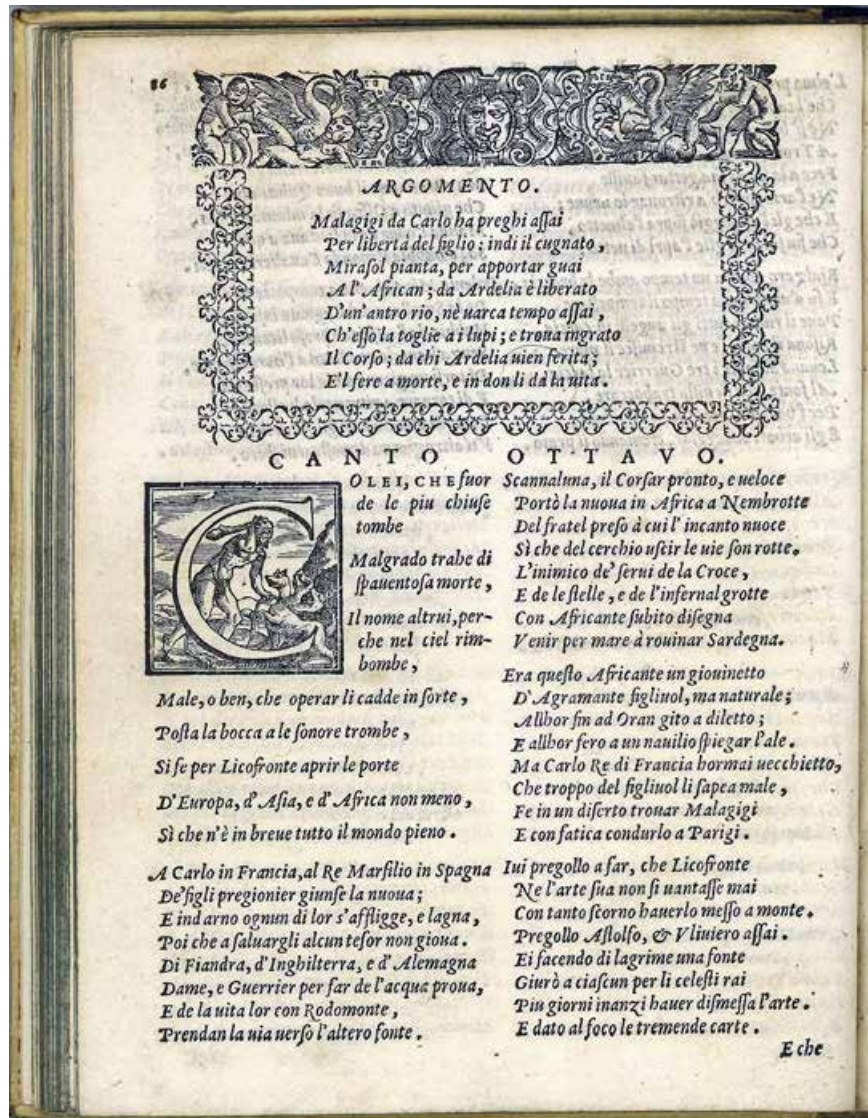 86
ARGOMENTO.
Malagigi da Carlo ha preghi aſſai
Per libertà del figlio; indi il cugnato,
Miraſol pianta, per apportar guai
A l'African; da Ardelia è liberato
D'un'antro rio, nè uarca tempo aſſai,
Ch'eſſo la toglie a i lupi; e troua ingrato
Il Corſo; da chi Ardelia uien ferita;
E'l fere a morte, e in don li dà la uita.
CANTO OTTAVO.
COLEI, CHE fuor
de le piu chiuſe
tombe
Malgrado trahe di
ſpauentoſa morte,
Il nome altrui, per-
che nel ciel rim-
bombe,
Male, o ben, che operar li cadde in ſorte,
Poſta la bocca a le ſonore trombe,
Si fe per Licofronte aprir le porte
D'Europa, d'Aſia, e d'Africa non meno,
Sì che n'è in breue tutto il mondo pieno.
A Carlo in Francia, al Re Marſilio in Spagna
De'figli pregionier giunſe la nuoua;
E indarno ognun di lor s'affligge, e lagna,
Poi che a ſaluargli alcun teſor non gioua.
Di Fiandra, d'Inghilterra, e d'Alemagna
Dame, e Guerrier per far de l'acqua proua,
E de la uita lor con Rodomonte,
Prendan la uia uerſo l'altero fonte.
Scannaluna, il Corſar pronto, e ueloce
Portò la nuoua in Africa a Nembrotte
Del fratel preſo à cui l'incanto nuoce
Sì che del cerchio uſcir le uie ſon rotte.
L'inimico de' ſerui de la Croce,
E de le ſtelle, e de l'infernal grotte
Con Africante ſubito diſegna
Venir per mare à rouinar Sardegna.
Era queſto Africante un giouinetto
D'Agramante figliuol, ma naturale;
Allhor fin ad Oran gito a diletto;
E allhor fero a un nauilio ſpiegar l'ale.
Ma Carlo Re di Francia hormai uecchietto,
Che troppo del figliuol li ſapea male,
Fe in un diſerto trouar Malagigi
E con fatica condurlo a Parigi.
Iui pregollo a far, che Licofronte
Ne l'arte ſua non ſi uantaſſe mai
Con tanto ſcorno hauerlo meſſo a monte.
Pregollo Aſtolfo, & Vliuiero aſſai.
Ei facendo di lagrime una fonte
Giurò a ciaſcun per li celeſti rai
Piu giorni inanzi hauer diſmeſſa l'arte.
E dato al foco le tremende carte.
E che